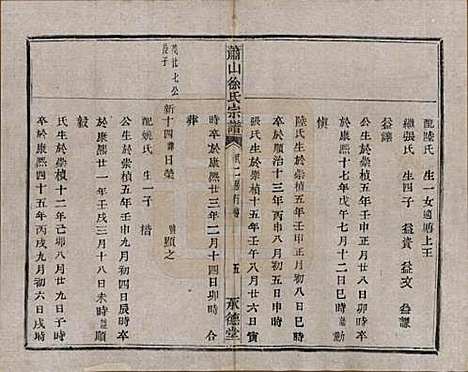 配陸氏 生一女適勝上王
繼張氏 生四子 益貴 益文 益謙
益讓
公生於崇禎十五年壬午正月廿八日卯時卒
於康熙十七年戊午七月十二日巳時
慎
陸氏生於崇禎十五年壬午正月初八日巳時
卒於順治十三年丙申八月初五日申時
張氏生於崇禎十五年壬午八月廿六日
時卒於康熙廿三年二月十四日卯時 合
葬
蕭山徐氏宗譜
五 承德堂
茂廿七公
長子
新十四 諱日榮 號顯之
配姚氏 生一子 楷
公生於崇禎十五年壬午九月初四日辰時卒
於康熙廿一年壬戌三月十八日未時
毅
氏生於崇禎十二年己卯八月廿九日子時
卒於康熙四十五年丙戌九月初六日戌時